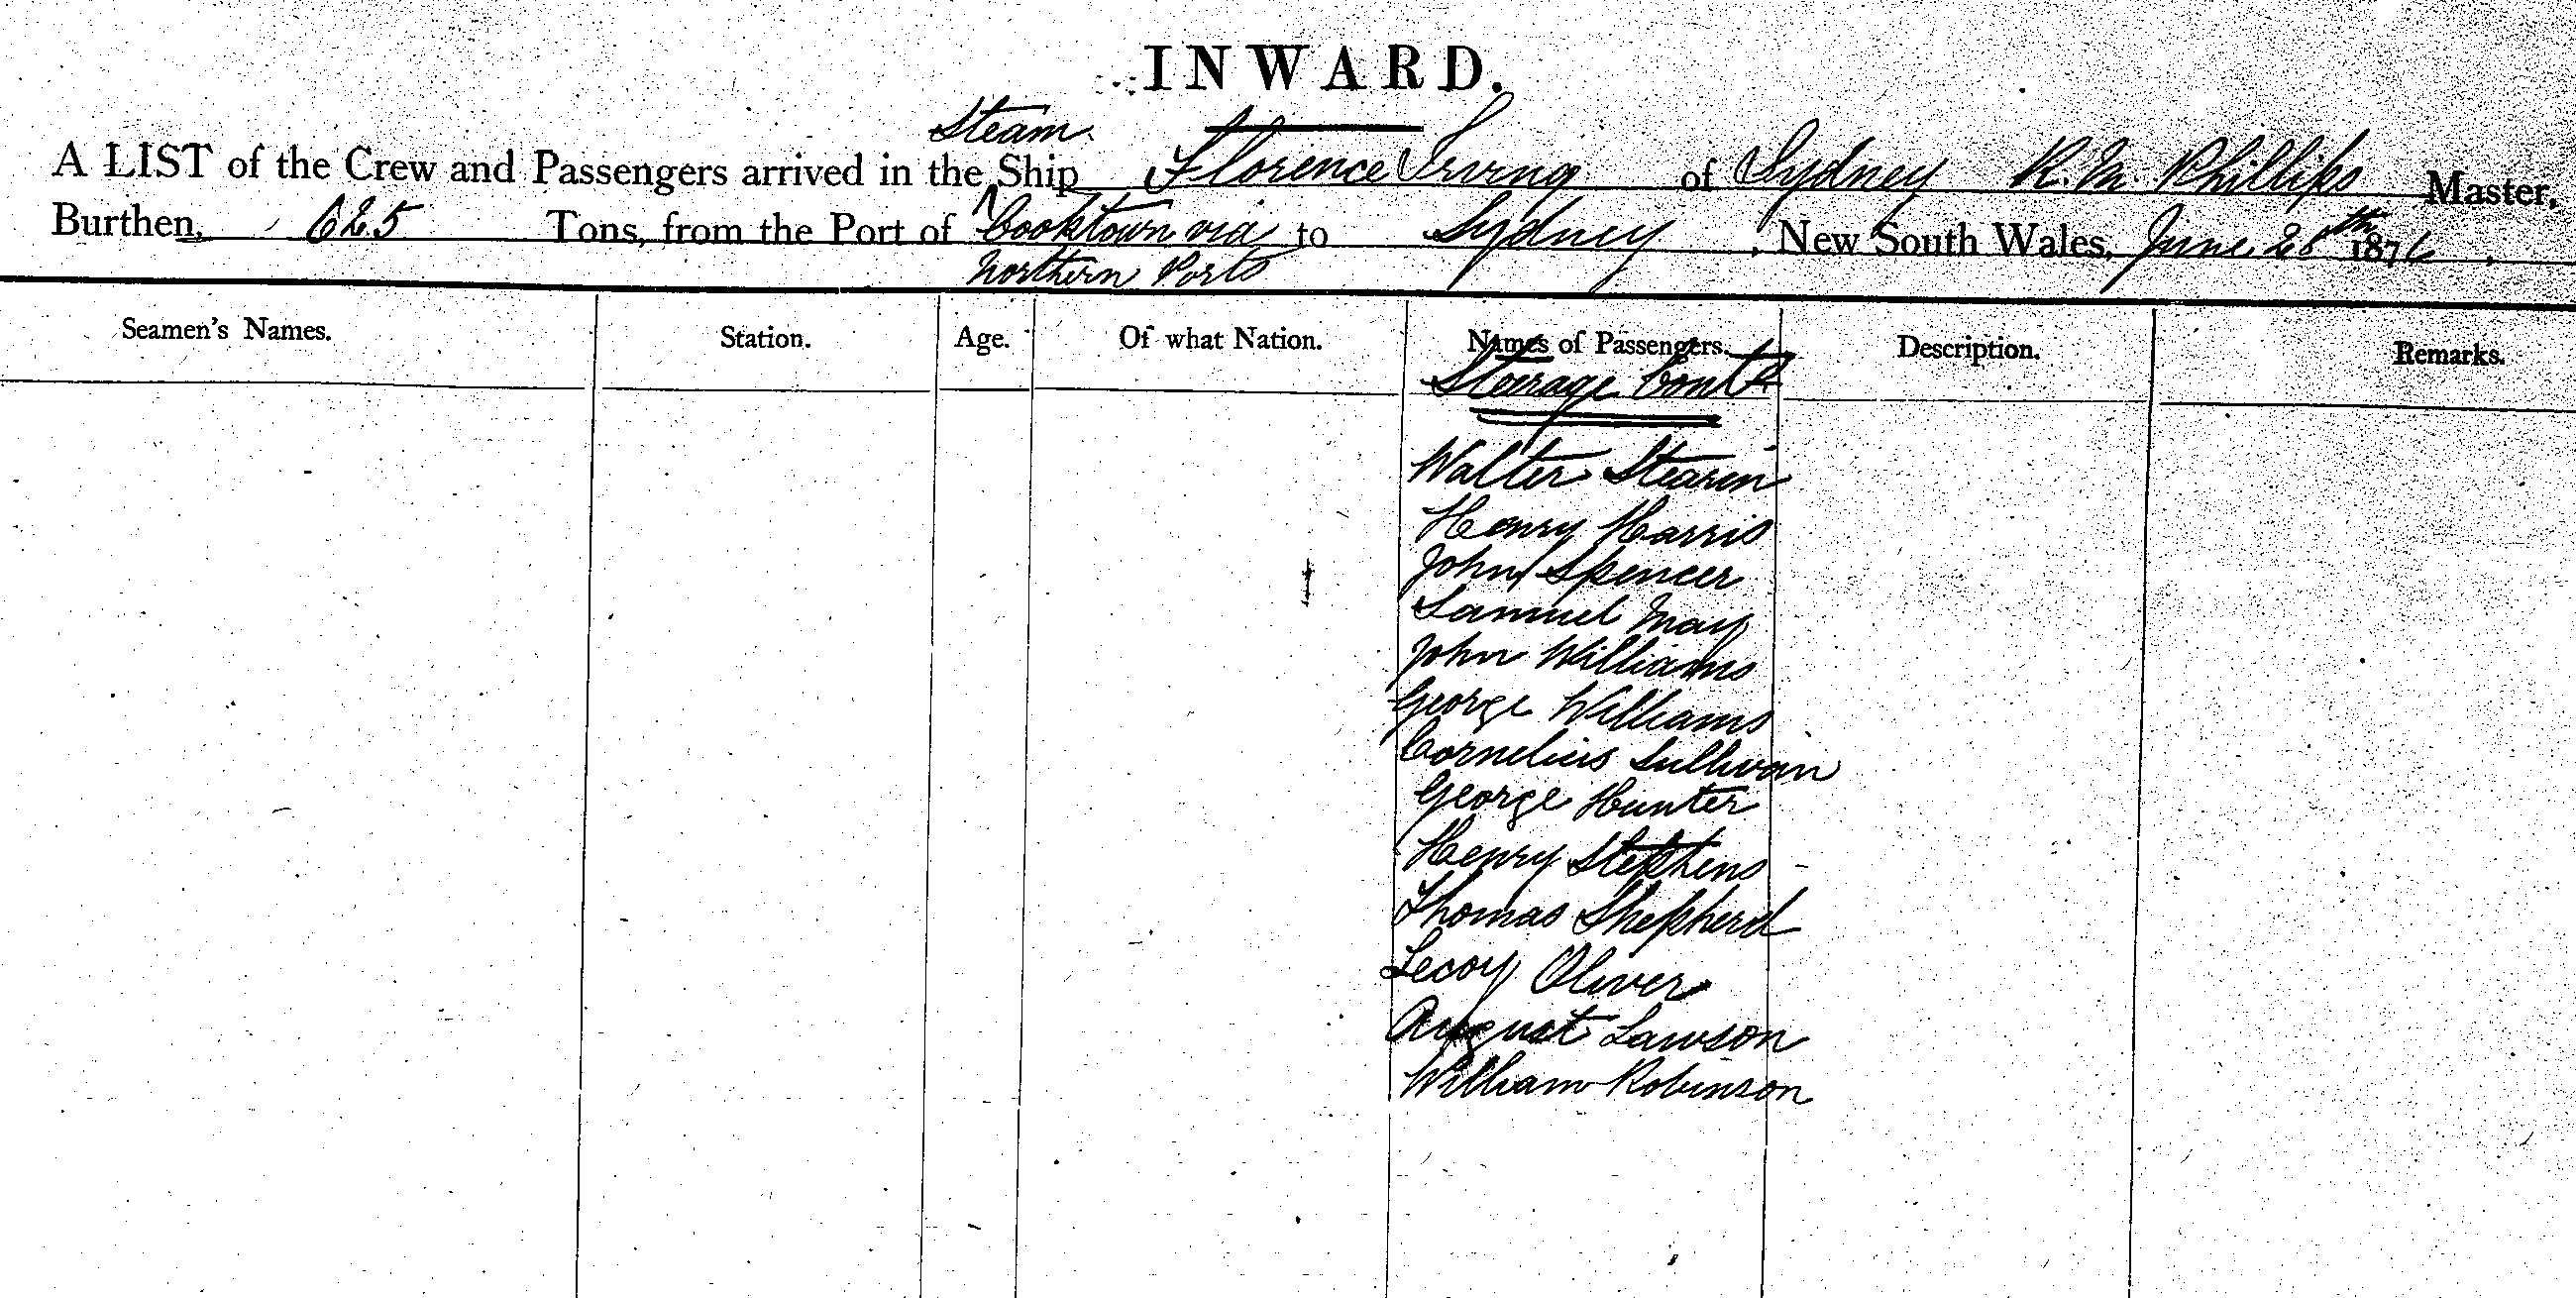 INWARD.
Steam
A LIST of the Crew and Passengers arrived in the Ship Florence Irving of Sydney R. M. Phillips Master,
Burthen, 625 Tons, from the Port of Cooktown via to Sydney, New South Wales, June 28th 1876.
Northern Ports
Seamen's Names. Station. Age. Of what Nation. Names of Passengers. Description. Remarks.
Steerage Contd
Walter Stearin
Henry Harris
John Spencer
Samuel May
John Williams
George Williams
Cornelius Sullivan
George Hunter
Henry Stephens
Thomas Shepherd
Lecoy Oliver
August Lawson
William Robinson